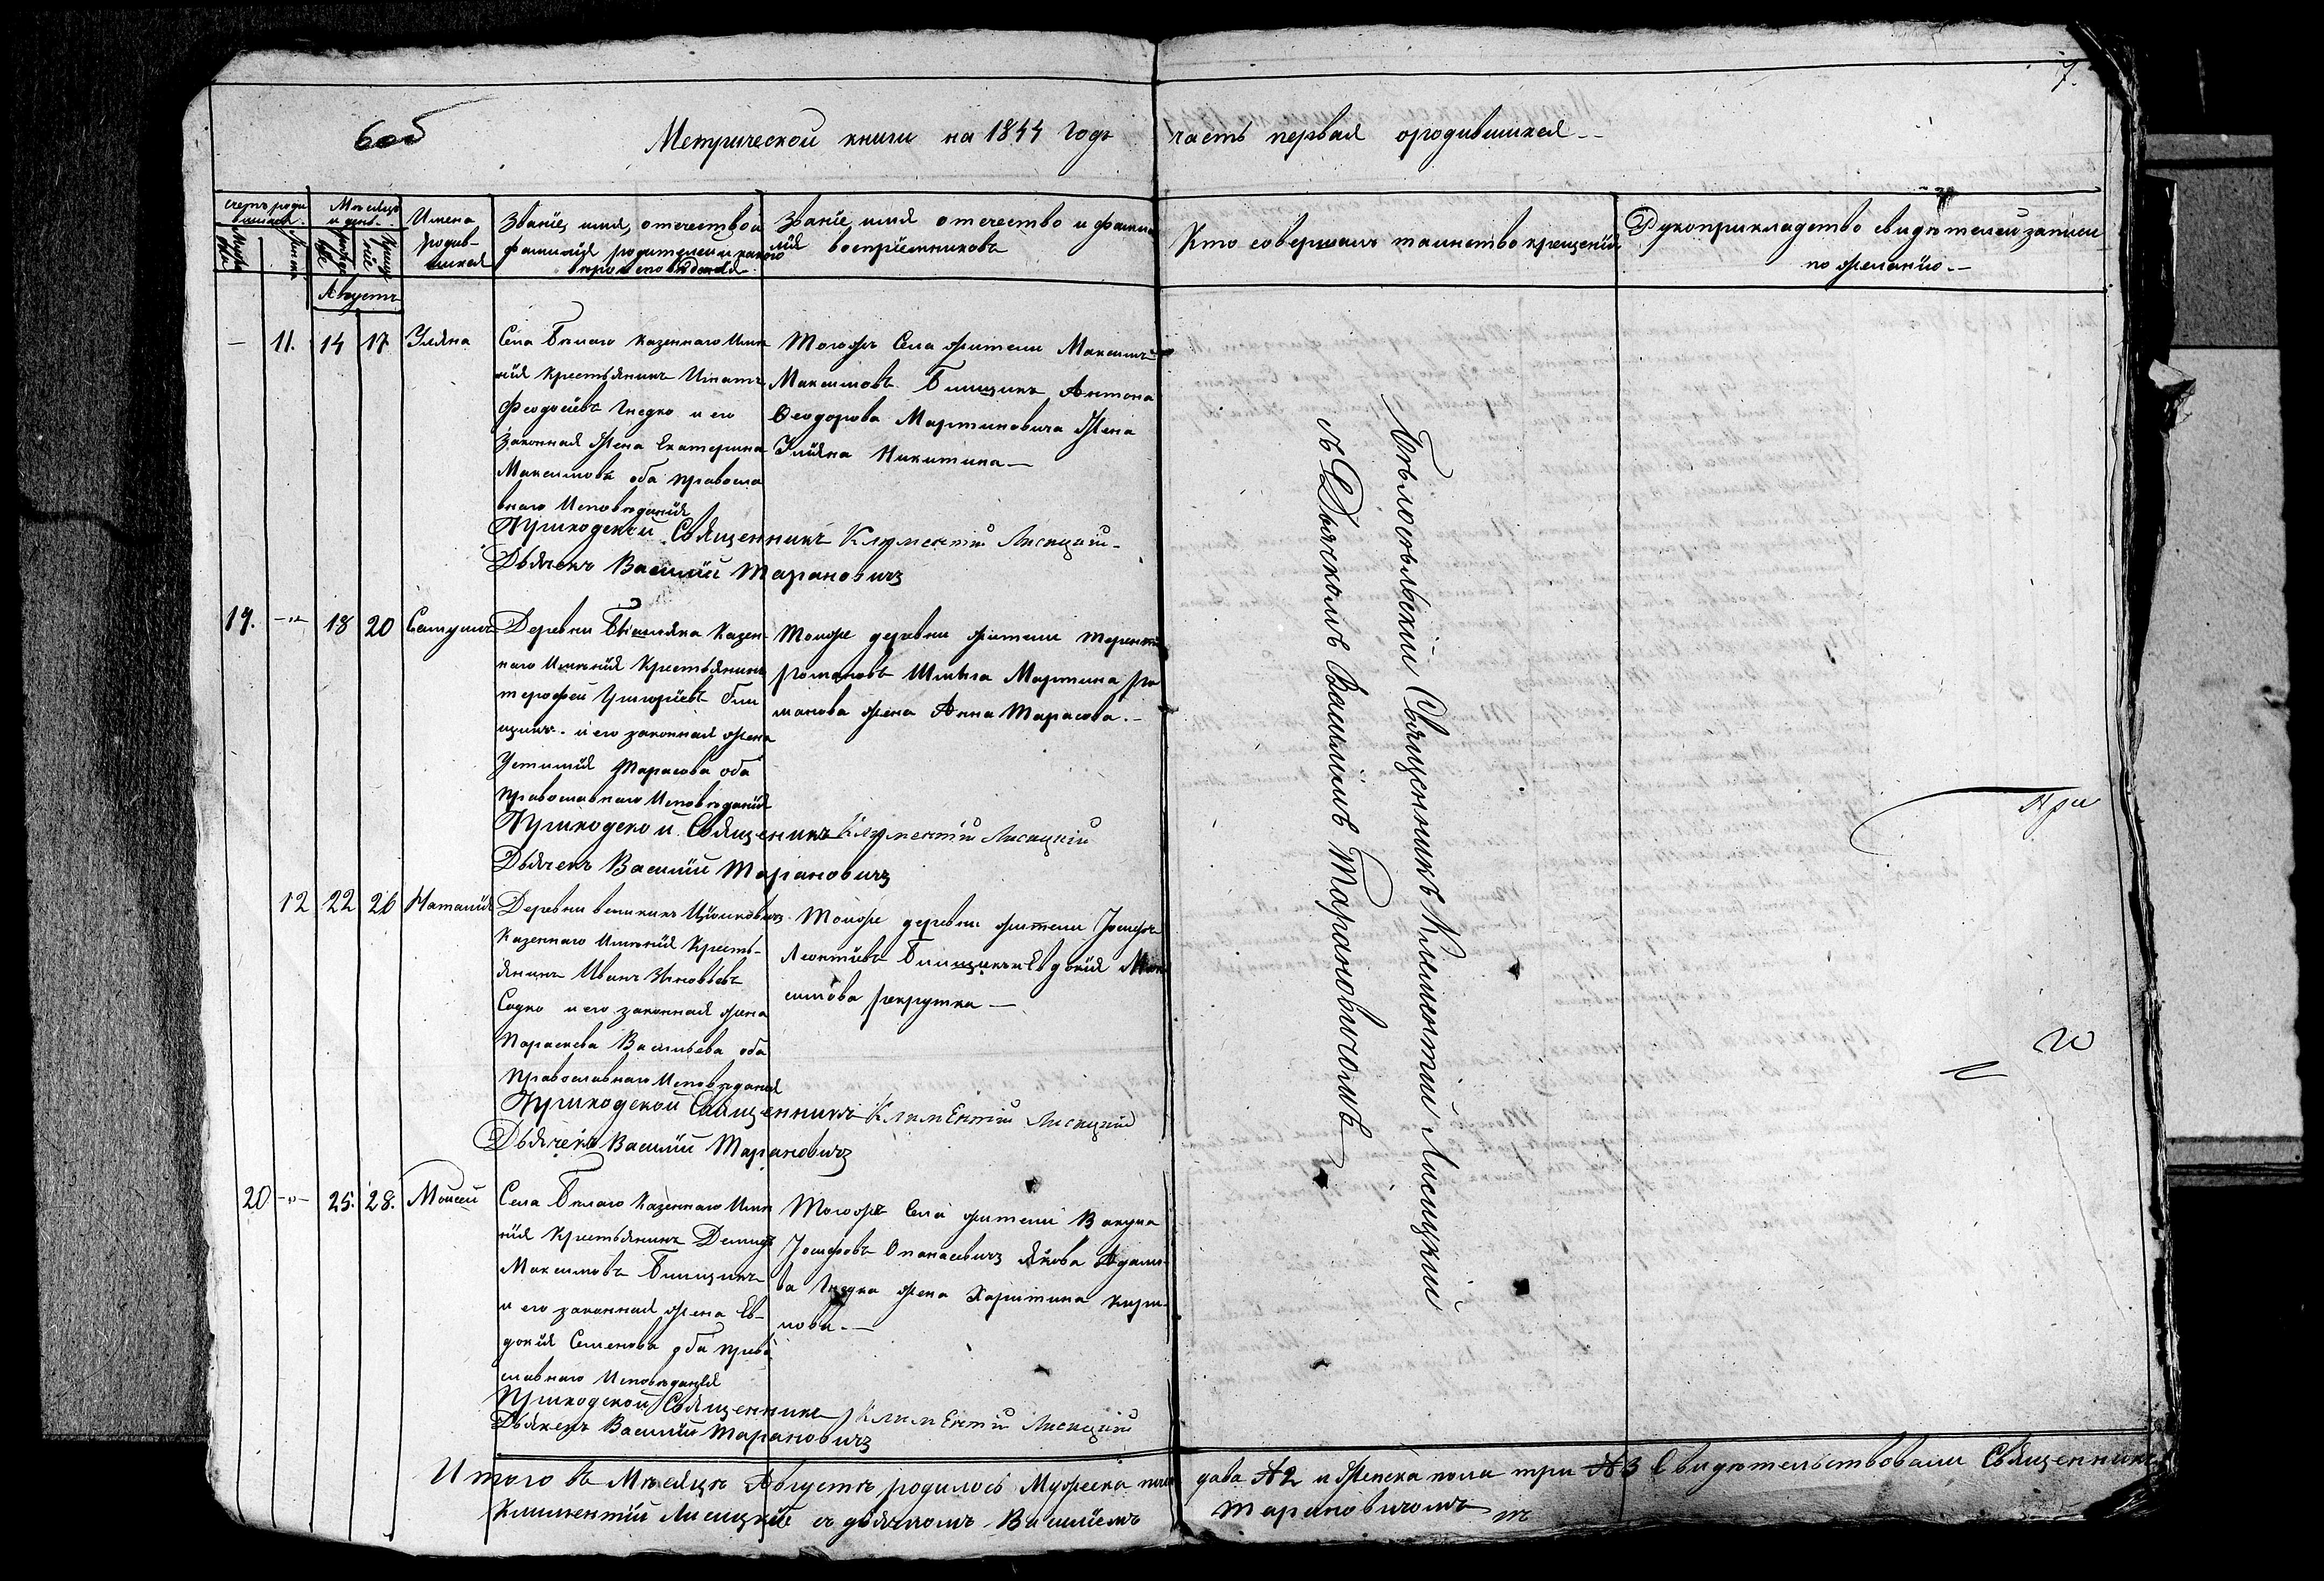 7.
6 об
Метрической книги на 1844 годъ часть первая ородившихся
счетъ роди
вшихся.
Мѣсяцъ
и день.
Имена
родив-
шихся
Званіе, имя, отчество и
фамилія родителей и какого
вероисповѣданія
Званіе имя отечество и фами
лія воспріемниковъ
Кто совершалъ таинство крещенія
Рукоприкладство свидѣтелей записи
по желанію.
Августъ
— 11. 14 17 Уляна
Села Бѣлаго казеннаго Имѣ
нія крестьянинъ Игнатъ
Феодосіевъ Гнедко и его
законная жена Екатерина
Максимова оба правосла
внаго Исповѣданія
Тогожъ Села жители Максимъ
Максимовъ Билищикъ Антона
Ѳеодорова Мартиновича жена
Уліяна Никитина
Приходской Священникъ Климентій Лисицкій
Дьячекъ Василій Тарановичъ
19. —„— 18 20
Деревни казен-
наго Имѣнія Крестьянинъ
Григоріевъ Били
щикъ. и его законная жена
Тарасова оба
православнаго Исповѣданія
Тойже деревни жители
романовъ Мартина ро
манова жена Анна Тарасова.
Приходской Священникъ Климентій Лисицкій
Дьячекъ Василій Тарановичъ
12 22 26 Наталія
Деревни великихъ
Казеннаго Имѣнія Кресть-
янинъ Иванъ Зиновьевъ
Содко и его законная жена
Параскева Васильева оба
православнаго Исповѣданія
Тойже деревни жители Іосифъ
Леонтіевъ Билищикъ и Евдокія Мак
симова рекрутка
Приходской Священникъ Климентій Лисицкій
Дьячекъ Василій Тарановичъ
20 —„— 25. 28. Моисей
Села Бѣлаго Казеннаго Имѣ
нія Крестьянинъ Демидъ
Максимовъ Билищикъ
и его законная жена Ев-
докія Семенова оба право
славнаго Исповѣданія
Тогожъ Села жители Вакула
Іосифовъ Опанасевичъ Якова Адамо-
ва Гнедка жена Харитина Кири-
лова.
Приходской Священникъ Климентій Лисицкій
Дьячекъ Василій Тарановичъ
Бѣлосельскій Священникъ Климентій Лисицкій
съ Дьячкомъ Василіемъ Тарановичомъ
При
Итого въ Мѣсяцѣ Августѣ родилось Мужеска пола два 2 и Женска пола три 3 Свидѣтельствовали Священникъ
Климентій Лисицкій съ дьячкомъ Василіемъ Тарановичомъ